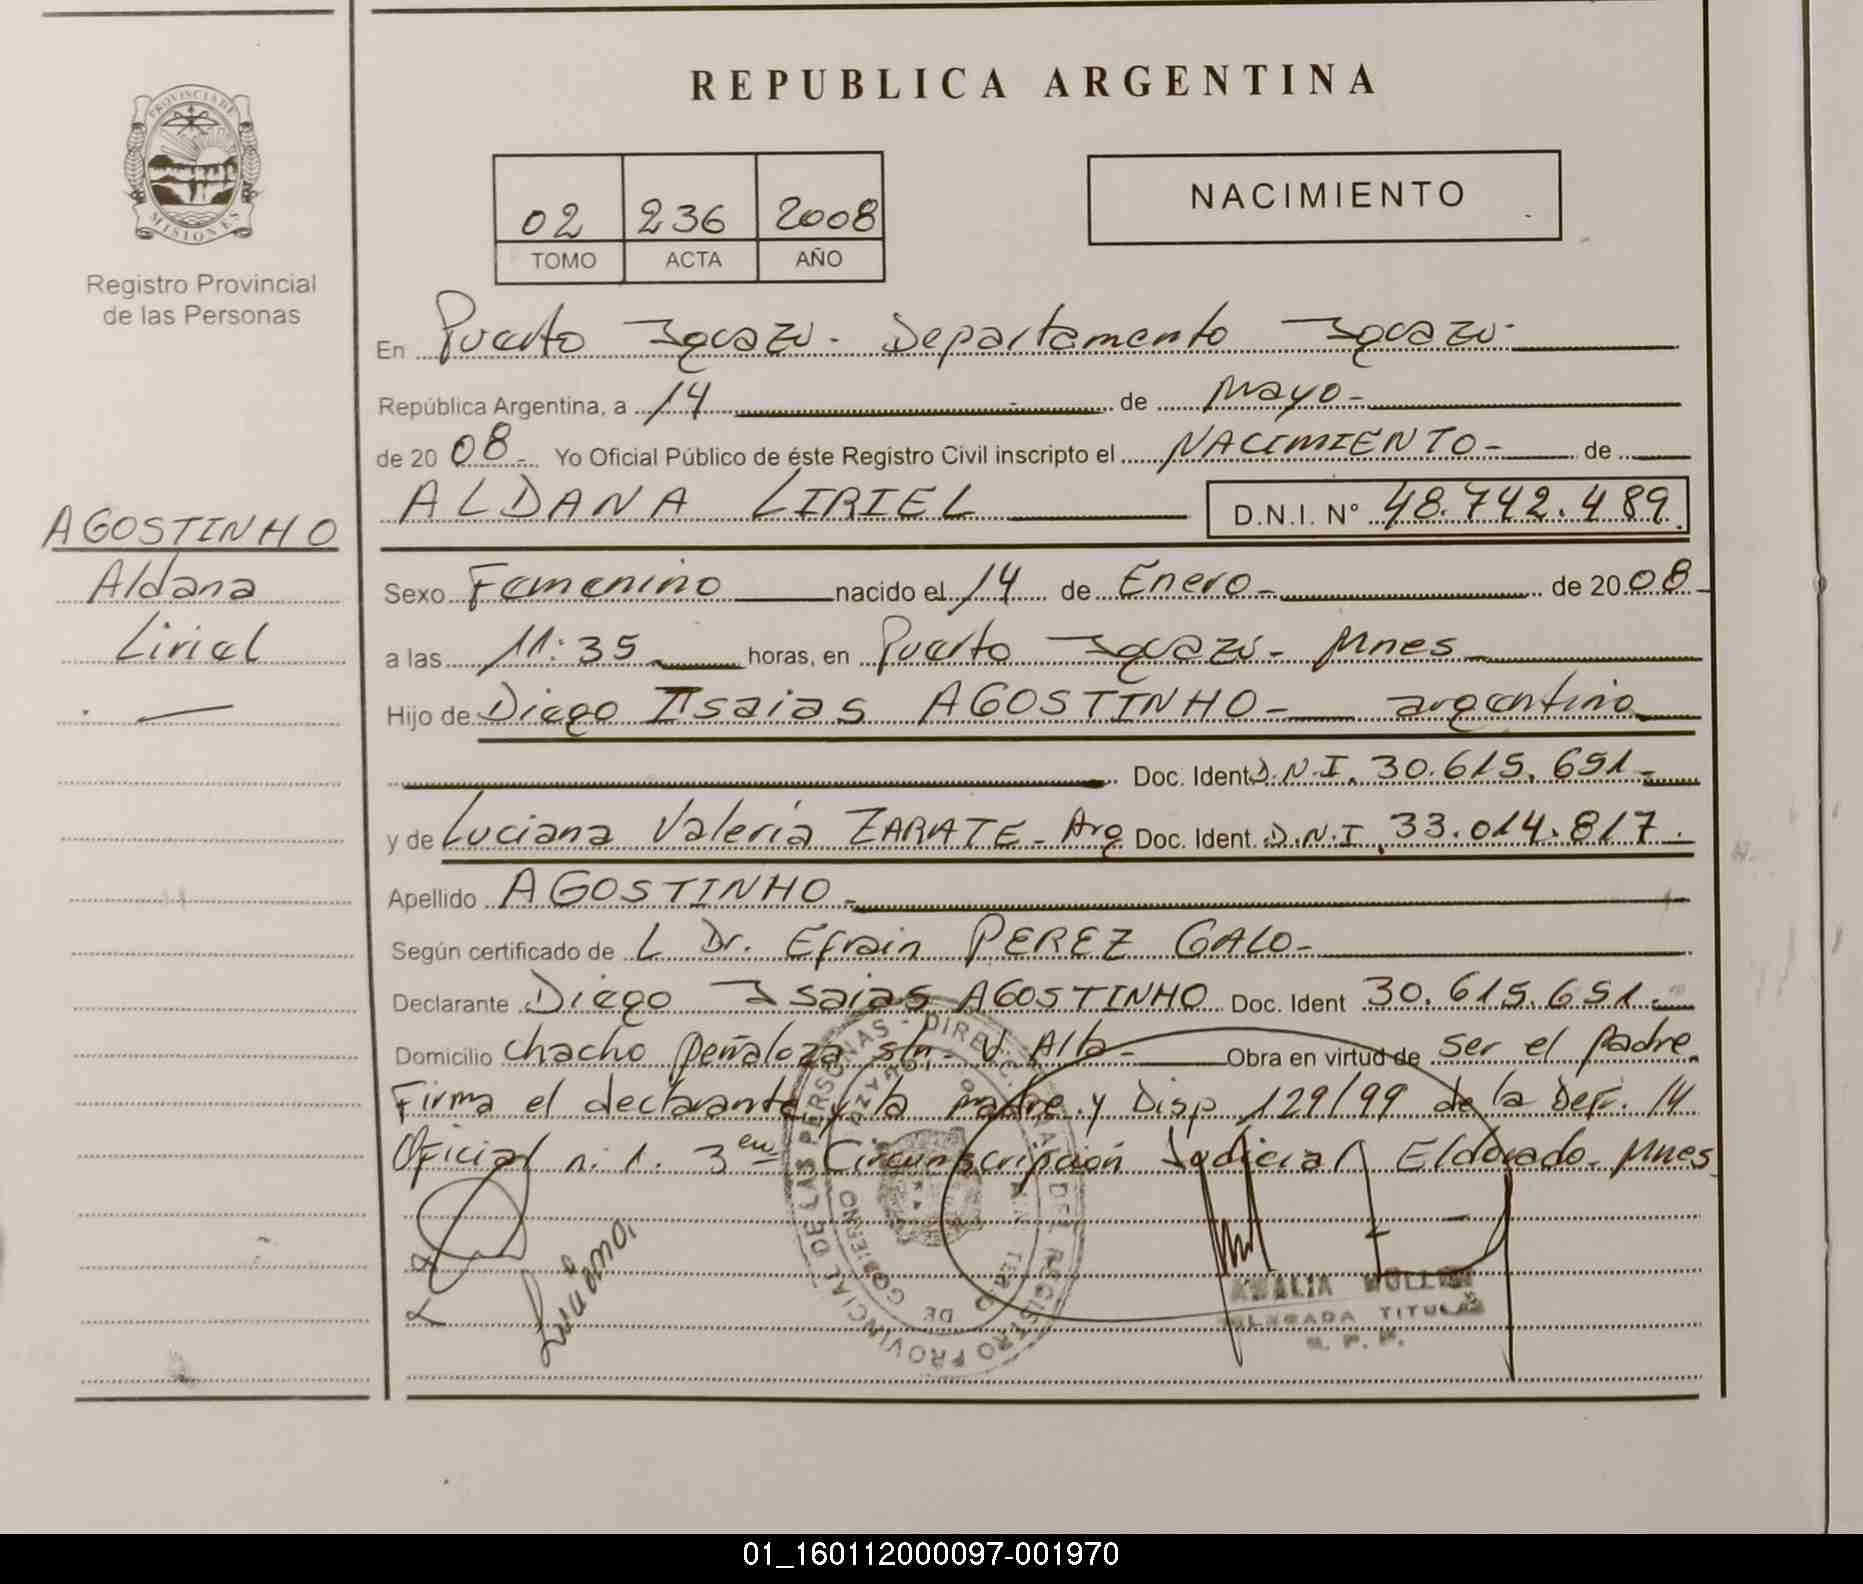 REPUBLICA ARGENTINA
PROVINCIA DE
MISIONES
Registro Provincial
de las Personas
02 236 2008
TOMO ACTA AÑO
NACIMIENTO
En Puerto Iguazú - Departamento Iguazú -
República Argentina, a 14 de Mayo -
de 20 08 - Yo Oficial Público de éste Registro Civil inscripto el NACIMIENTO - de
ALDANA LIRIEL D.N.I. N° 48.742.489
AGOSTINHO
Aldana
Liriel
Sexo Femenino nacido el 14 de Enero - de 20 08 -
a las 11:35 horas, en Puerto Iguazú - Mnes -
Hijo de Diego Isaias AGOSTINHO - argentino
Doc. Ident. D.N.I. 30.615.651 -
y de Luciana Valeria ZARATE - Arg Doc. Ident. D.N.I. 33.014.817.
Apellido AGOSTINHO -
Según certificado de L Dr. Efrain PEREZ GALO -
Declarante Diego Isaias AGOSTINHO Doc. Ident 30.615.651 -
Domicilio Chacho Peñaloza s/n - V Alta - Obra en virtud de ser el padre
Firma el declarante y la madre y Disp 129/99 de la Def. 14
Oficial n. 1. 3era Circunscripción Judicial Eldorado - Mnes
Luciana
TITULAR
01_160112000097-001970